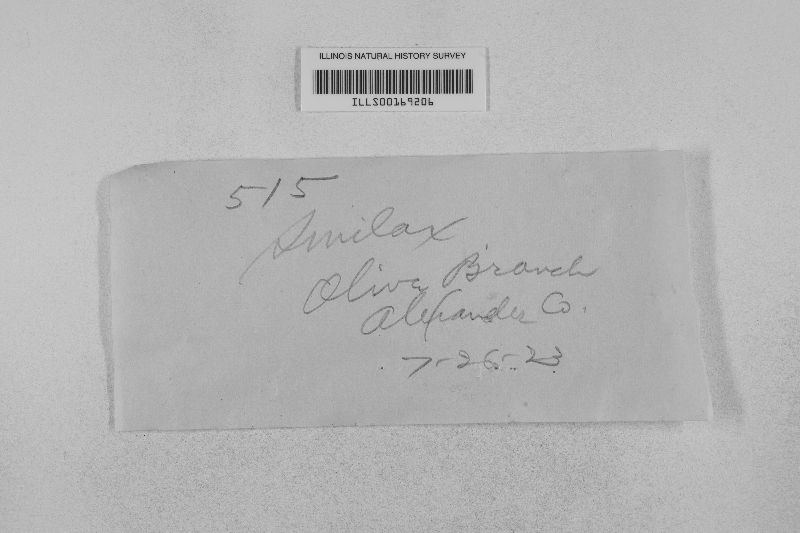 ILLINOIS NATURAL HISTORY SURVEY
ILLS00169206
515
Smilax
Olive Branch
Alexander Co.
7-26-23